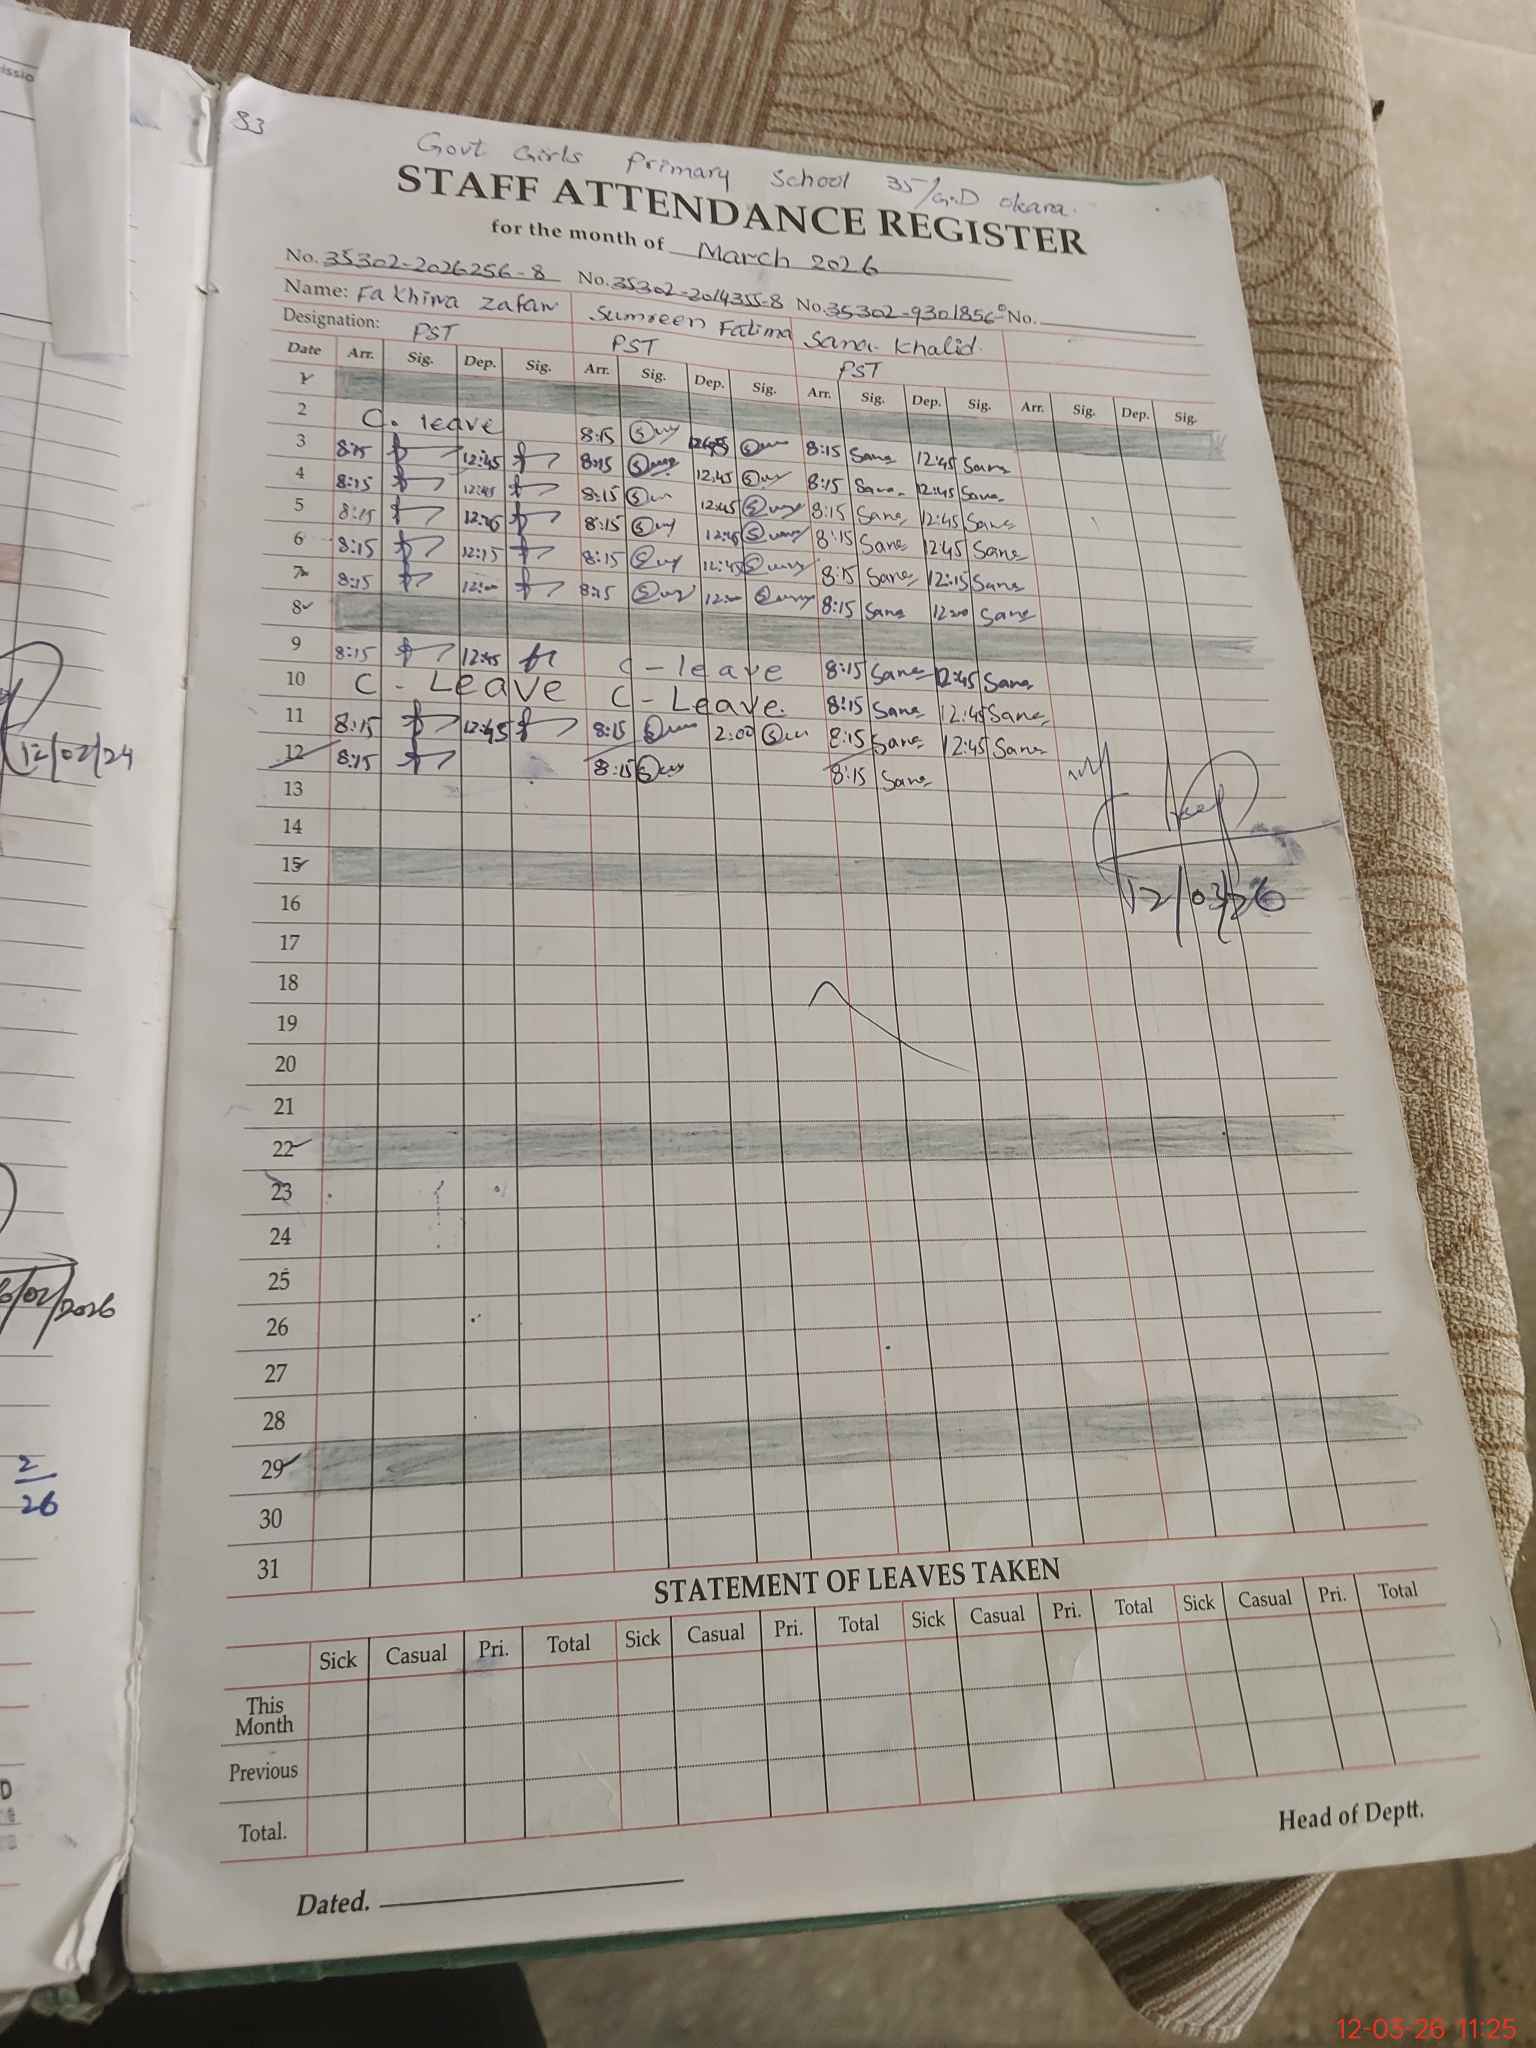 83
Govt Girls Primary School 35/G.D Okara.
STAFF ATTENDANCE REGISTER
for the month of March 2026
No. 35302-2026256-8 No. 35302-2014355-8 No. 35302-9301856-0 No.
Name: Fakhira Zafar Sumreen Fatima Sana Khalid
Designation: PST PST PST
Date Arr. Sig. Dep. Sig. Arr. Sig. Dep. Sig. Arr. Sig. Dep. Sig. Arr. Sig. Dep. Sig.
1
2 C. leave 8:15 12:45 8:15 Sana 12:45 Sana
3 8:15 12:45 8:15 12:45 8:15 Sana 12:45 Sana
4 8:15 12:45 8:15 12:45 8:15 Sana 12:45 Sana
5 8:15 12:45 8:15 12:45 8:15 Sana 12:45 Sana
6 8:15 12:15 8:15 12:45 8:15 Sana 12:15 Sana
7 8:15 12:00 8:15 12:00 8:15 Sana 12:00 Sana
8
9 8:15 12:45 C-leave 8:15 Sana 12:45 Sana
10 C-Leave C-Leave. 8:15 Sana 12:45 Sana
11 8:15 12:45 8:15 2:00 8:15 Sana 12:45 Sana
12 8:15 8:15 8:15 Sana
13
14
15
12/03/26
16
17
18
19
20
21
22
23
24
25
26
27
28
29
30
31
STATEMENT OF LEAVES TAKEN
Sick Casual Pri. Total Sick Casual Pri. Total Sick Casual Pri. Total Sick Casual Pri. Total
This Month
Previous
Total.
Head of Deptt.
Dated.
12/02/24
/02/2026
2
26
12-03-26 11:25